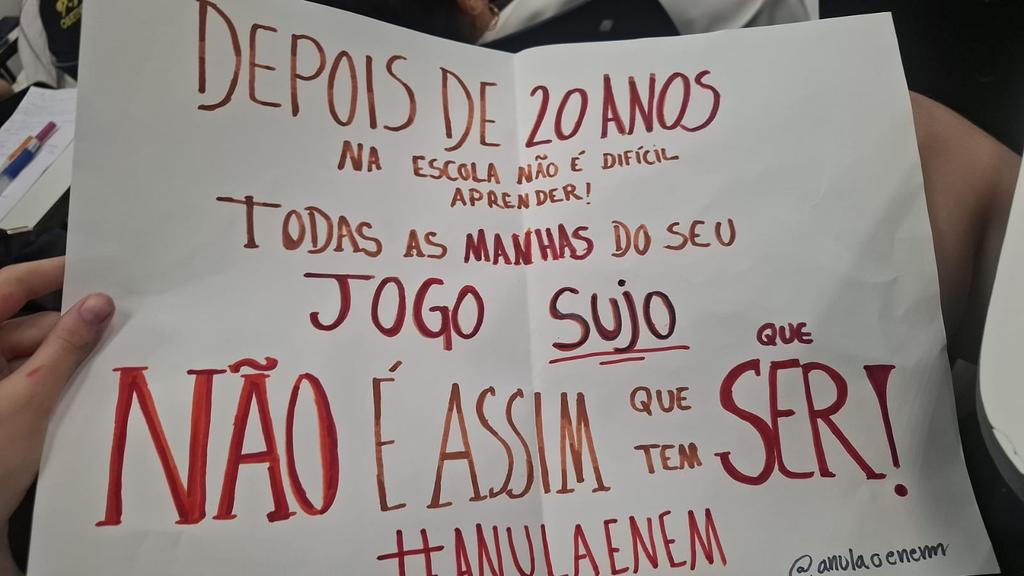 DEPOIS DE 20 ANOS
NA ESCOLA NÃO É DIFÍCIL
APRENDER!
TODAS AS MANHAS DO SEU
JOGO SUJO
NÃO É ASSIM QUE TEM QUE SER!
#ANULAENEM
@anulaoenem